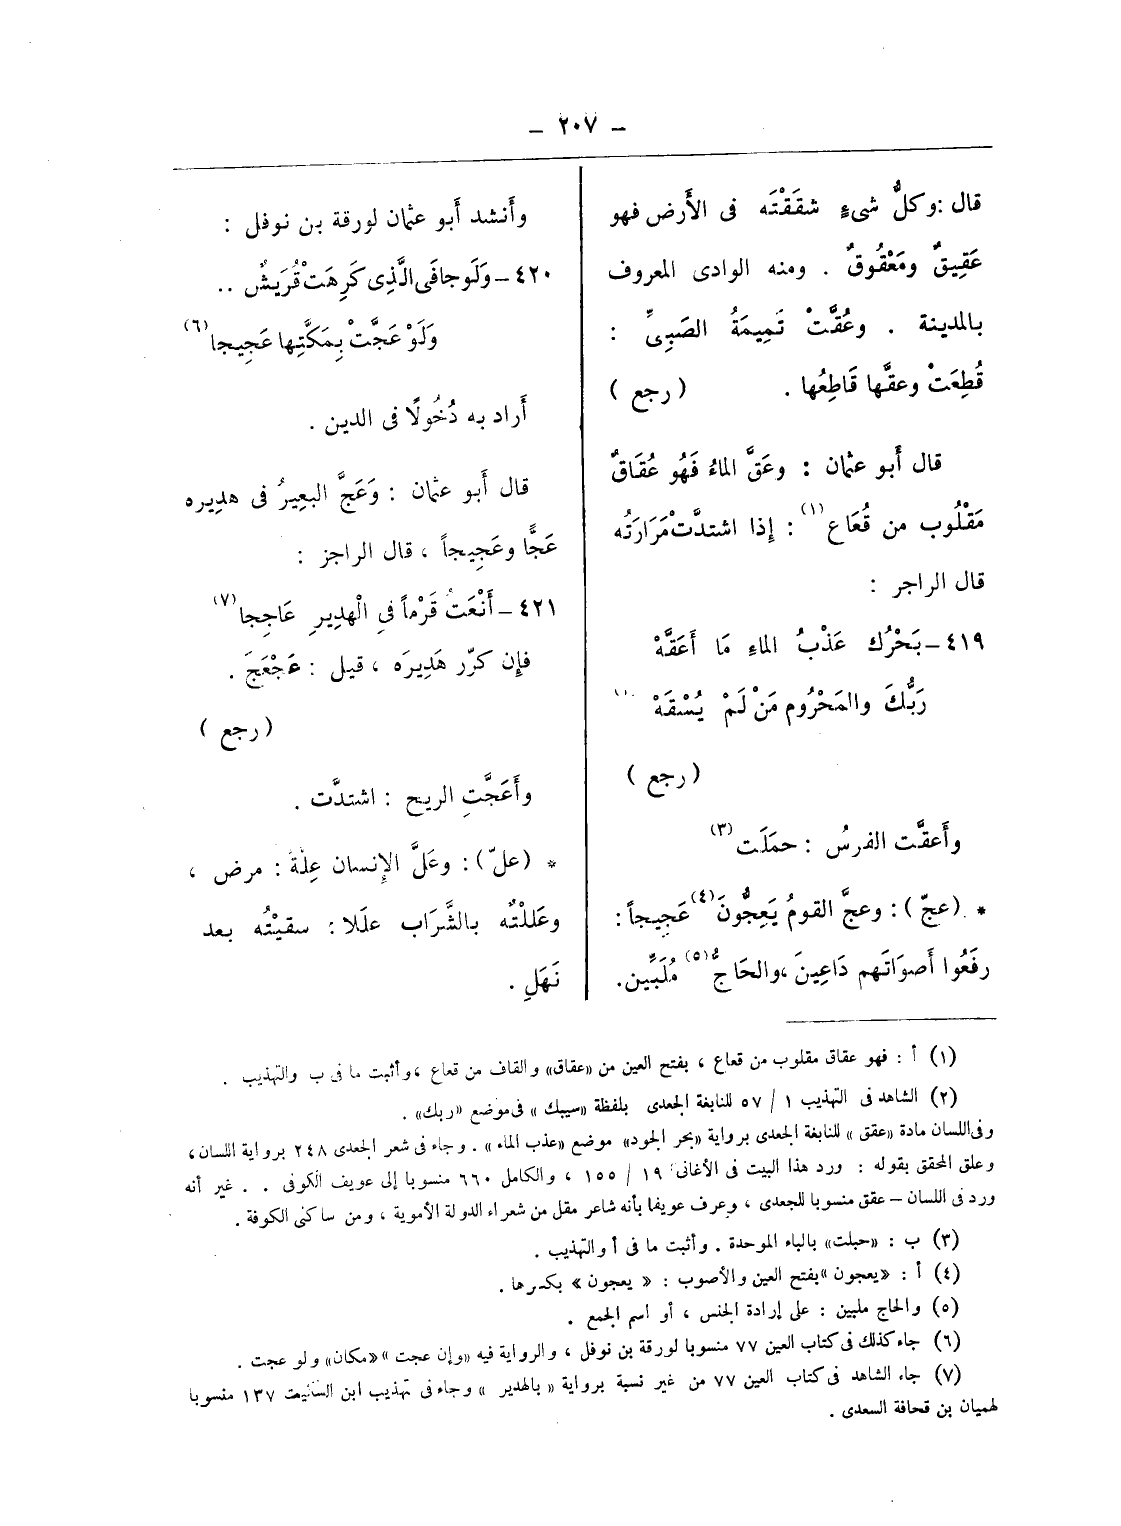 – ٢٠٧ –
قال : وكلُّ شىءٍ شقَقْتَه فى الأَرض فهو
عَقِيقٌ ومَعْقُوقٌ . ومنه الوادى المعروف
بالمدينة . وعُقَّتْ تَمِيمَةُ الصَبِىِّ :
قُطِعَتْ وعقَّها قَاطِعُها . ( رجع )
قال أَبو عثمان : وعَقَّ الماءُ فَهُو عُقَاقٌ
مَقْلُوب من قُعَاع (١) : إِذا اشتدَّتْ مَرَارَتُه
قال الراجز :
٤١٩ – بَحْرُك عَذْبُ الماءِ مَا أَعَقَّهْ
رَبُّكَ والمَحْرُوم مَنْ لَمْ يُسْقَهْ
( رجع )
وأَعقَّت الفرسُ : حمَلَت (٣)
* (عجّ ) : وعجَّ القومُ يَعِجُّونَ (٤) عَجِيجاً :
رفَعُوا أَصوَاتَهم دَاعِينَ ، والحَاجُّ (٥) مُلَبِّين.
وأَنشد أَبو عثمان لورقة بن نوفل :
٤٢٠ – وَلَوجا فَى الَّذِى كَرِهَتْ قُرَيشٌ ..
وَلَوْ عَجَّتْ بِمَكَّتِها عَجِيجا (٦)
أَراد به دُخُولًا فى الدين .
قال أَبو عثمان : وَعَجَّ البعِيرُ فى هديِره
عَجًّا وعَجِيجاً ، قال الراجز :
٤٢١ – أَنْعَتُ قَرْماً فىِ الْهدِيرِ عَاجِجا (٧)
فإِن كرّر هَدِيرَه ، قيل : عَجْعَجَ .
( رجع )
وأَعَجَّتِ الريح : اشتدَّت .
* (علّ ) : وعَلَّ الإِنسان عِلةً : مرض ،
وعَللْتُه بالشَّرَاب علَلا : سقيْتُه بعد
نَهَلِ .
(١) أ : فهو عقاق مقلوب من قعاع ، بفتح العين من «عقاق» والقاف من قعاع ، وأثبت ما فى ب والتهذيب .
(٢) الشاهد فى التهذيب ١ / ٥٧ للنابغة الجعدى بلفظة «سيبك » فى موضع «ربك» .
وفى اللسان مادة «عقق » للنابغة الجعدى برواية «بحر الجود» موضع «عذب الماء » . وجاء فى شعر الجعدى ٢٤٨ برواية اللسان ،
وعلق المحقق بقوله : ورد هذا البيت فى الأغانى ١٩ / ١٥٥ ، والكامل ٦٦٠ منسوبا إلى عويف الكوفى . . غير أنه
ورد فى اللسان – عقق منسوبا للجعدى ، وعرف عويفا بأنه شاعر مقل من شعراء الدولة الأموية ، ومن ساكنى الكوفة .
(٣) ب : «حبلت» بالباء الموحدة . وأثبت ما فى أ والتهذيب .
(٤) أ : «يعجون » بفتح العين والأصوب : « يعجون » بكسرها .
(٥) والحاج ملبين : على إرادة الجنس ، أو اسم الجمع .
(٦) جاء كذلك فى كتاب العين ٧٧ منسوبا لورقة بن نوفل ، والرواية فيه «وإن عجت » «مكان» ولو عجت .
(٧) جاء الشاهد فى كتاب العين ٧٧ من غير نسبة برواية « بالهدير » وجاء فى تهذيب ابن السكيت ١٣٧ منسوبا
لهميان بن قحافة السعدى .